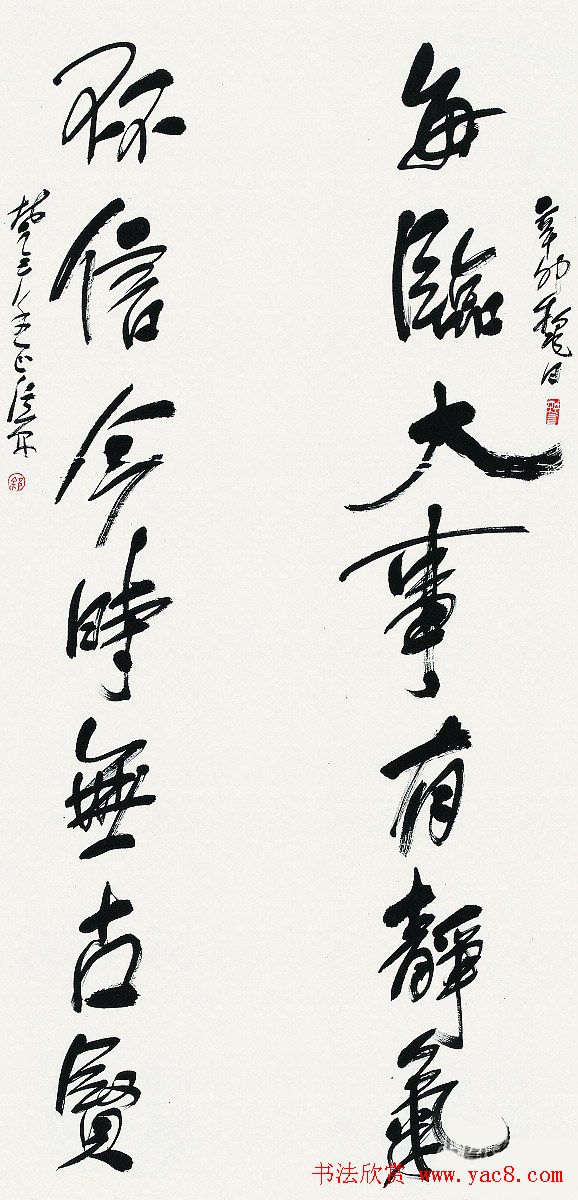 辛卯龝日
每臨大事有靜氣
信今時無古賢
书法欣赏 www.yac8.com